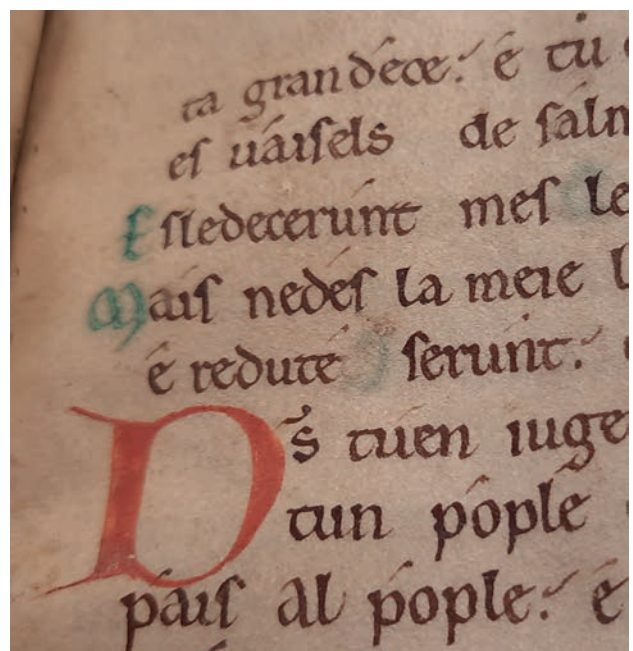 ta grandéce: é tu
es váisels de salm
Esledecerúnt mes le
Mais nedés la meie l
é reduté serúnt:
Ds tuen iuge
tun póple
páis al pople: é